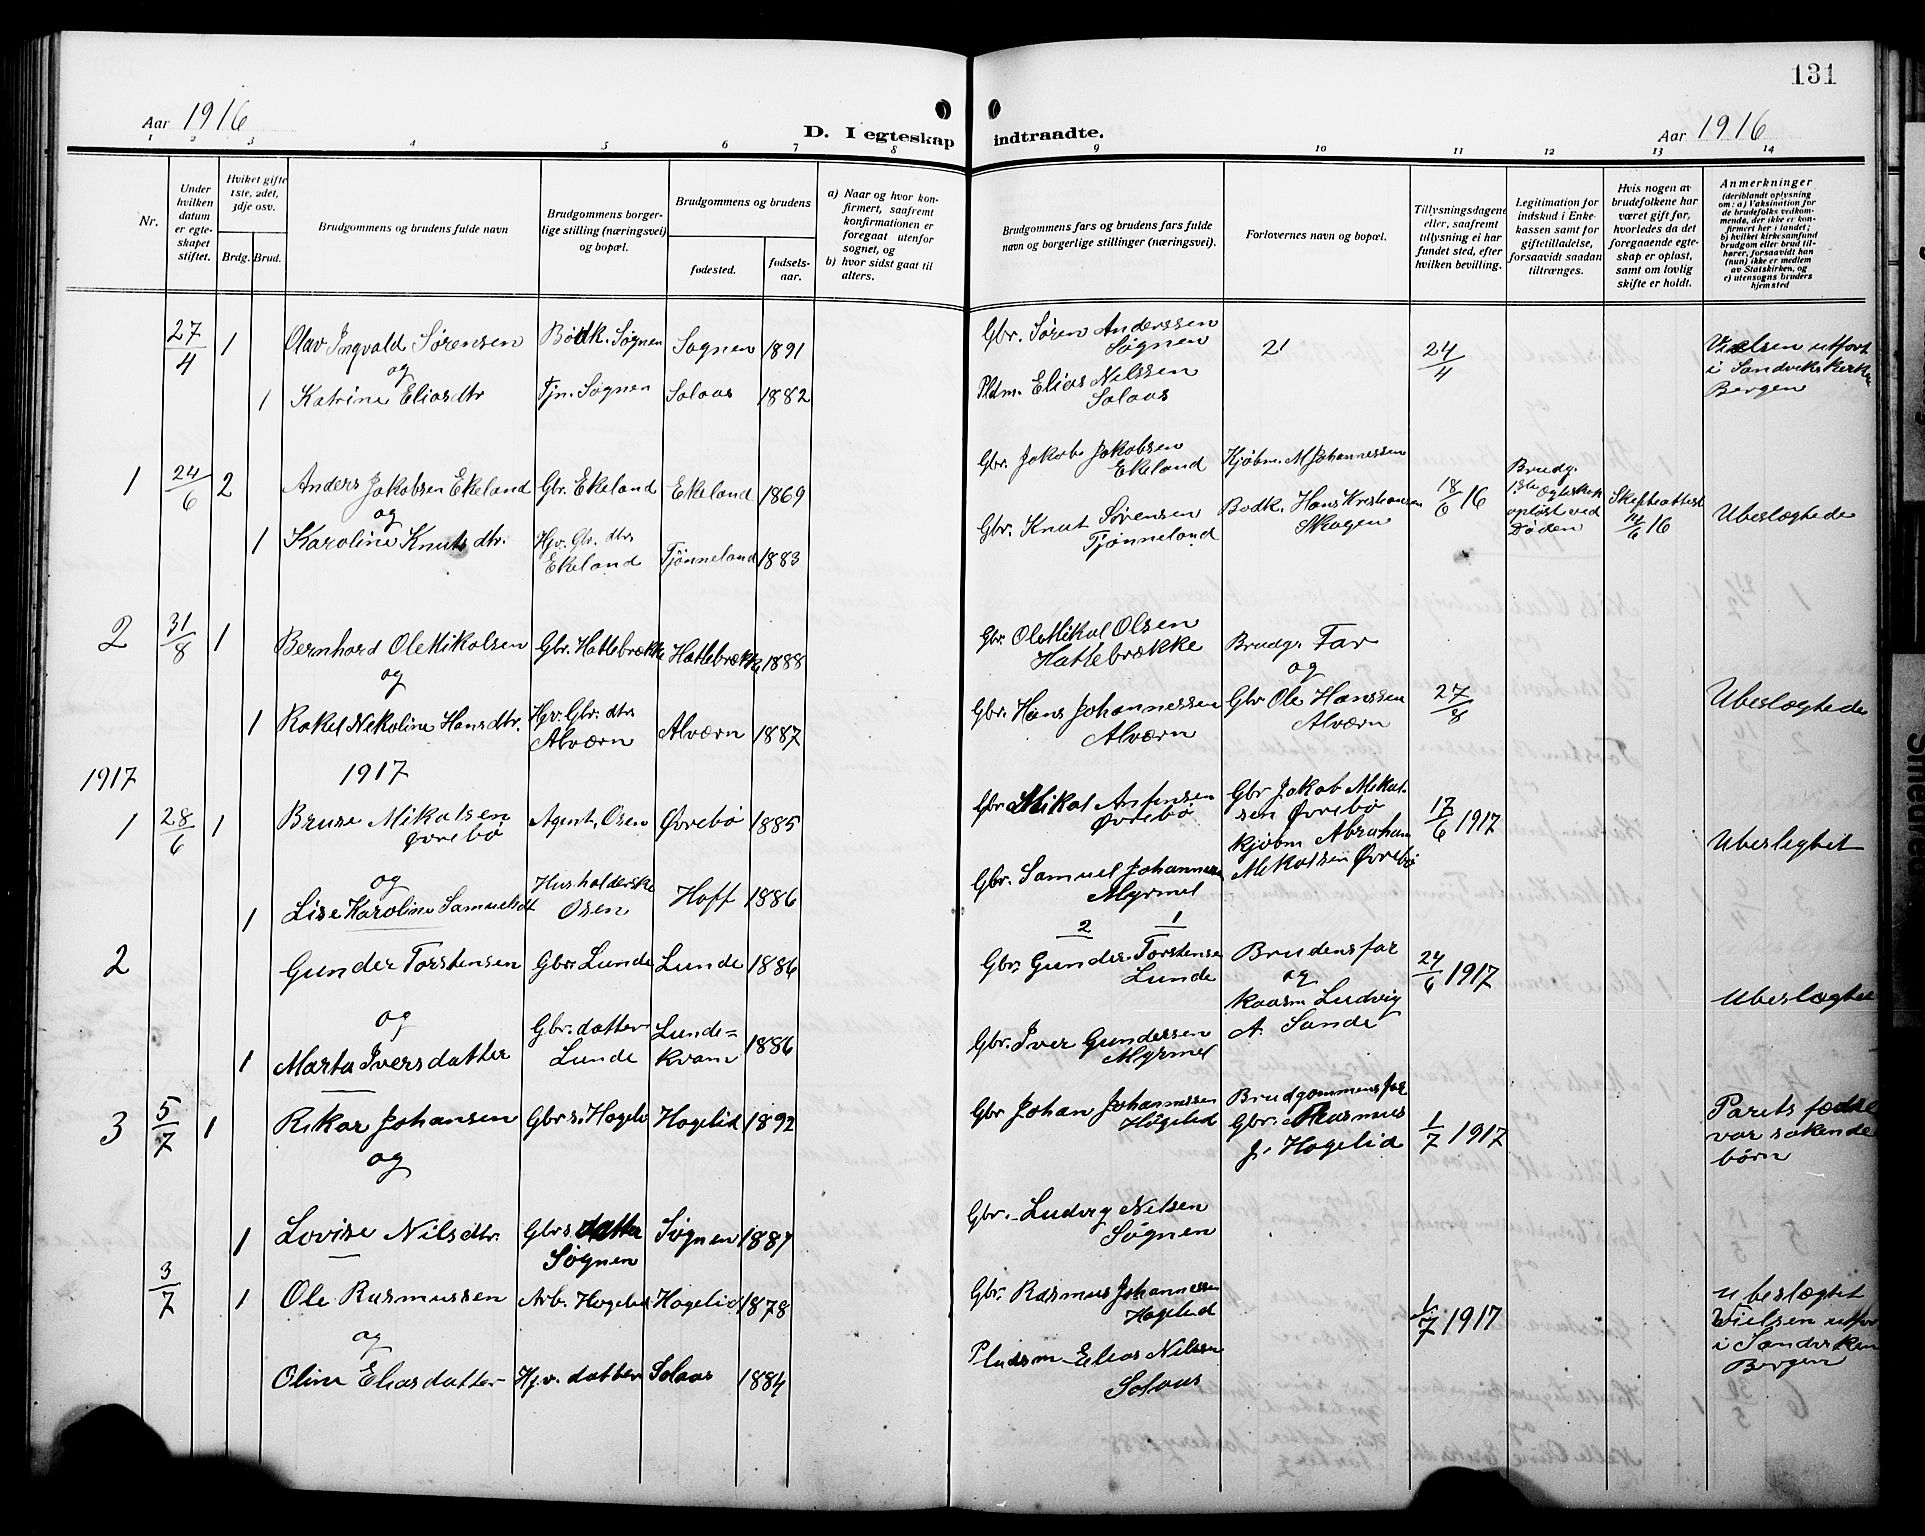 131
Aar 1916
D. I egteskap indtraadte.
Aar 1916
1 2 3 4 5 6 7 8 9 10 11 12 13 14
Nr.
Under hvilken datum er egteskapet stiftet.
Hviket gifte 1ste, 2det, 3dje osv.
Brdg. Brud.
Brudgommens og brudens fulde navn
Brudgommens borgerlige stilling (næringsvei) og bopæl.
Brudgommens og brudens
fødested.
fødselsaar.
a) Naar og hvor konfirmert, saafremt konfirmationen er foregaat utenfor sognet, og
b) hvor sidst gaat til alters.
Brudgommens fars og brudens fars fulde navn og borgerlige stillinger (næringsvei).
Forlovernes navn og bopæl.
Tillysningsdagene eller, saafremt tillysning ei har fundet sted, efter hvilken bevilling.
Legitimation for indskud i Enkekassen samt for giftetilladelse, forsaavidt saadan tiltrænges.
Hvis nogen av brudefolkene har været gift før, hvorledes da det foregaaende egteskap er opløst, samt om lovlig skifte er holdt.
Anmerkninger
(deriblandt oplysning om: a) Vaksination for de brudefolks vedkommende, der ikke er konfirmert her i landet; b) hvilket kirkesamfund brudgom eller brud tilhører, forsaavidt han (hun) ikke er medlem av Statskirken, og c) utensogns bruders hjemsted
27/4 1 Olav Ingvald Sørensen Bødk. Søgnen Søgnen 1891 Gbr. Søren Anderssen Søgnen 2! 24/4 Vielsen utført i Sandvikskirken Bergen
og
1 Katrine Eliasdtr Tjn. Søgnen Solaas 1882 Pldm. Elias Nilssen Solaas
1 24/6 2 Anders Jakobsen Ekeland Gbr. Ekeland Ekeland 1869 Gbr. Jakob Jakobsen Ekeland Kjøbm. M Johannessen 18/6 16 Brudg. 1ste Egteskap opløst ved Døden Skifteattest 14/6 16 Ubeslægtede
og
1 Karoline Knutsdtr. Hjv. Gbr. dtr Ekeland Tjønneland 1883 Gbr. Knut Sørensen Tjønneland Bødk. Hans Kristiansen Skogen
2 31/8 1 Bernhard OleMikalsen Gbr. Hattebrække Hattebrække 1888 Gbr. OleMikal Olsen Hattebrække Brudg. Far
og
1 Rakel Nikoline Hansdtr. Hjv. Gbr. dtr Alværn Alværn 1887 Gbr. Hans Johannessen Alværn Gbr Ole Hanssen Alværn 27/8 Ubeslægtede
1917 1917
1 28/6 1 Bruse Mikalsen Øvrebø Agent, Osen Øvrebø 1885 Gbr Mikal Antonsen Øvrebø Gbr Jakob Mikalsen Øvrebø 17/6 1917 Ubeslegtet
og
1 Lise Karoline Samuelsdt Husholderske Osen Hoff 1886 Gbr. Samuel Johannesen Myrmel kjøbm Abraham Mikalsen Øvrebø
2 1
2 Gunder Torstensen Gbr. Lunde Lunde 1886 Gbr. Gunder Torstensen Lunde Brudens far 24/6 1917 Ubeslægtet
og
1 Marta Iversdatter Gbr. datter Lunde Lunde=kvam 1886 Gbr. Iver Gundersen Myrmel kaasm Ludvig A. Sande
3 5/7 1 Rikar Johansen Gbr s. Høgelid Høgelid 1892 Gbr Johan Johannessen Høgelid Brudgommens far Gbr. Rasmus J. Høgelid 1/7 1917 Parets fædre var søskendebørn
og
1 Lovise Nilsdtr. Gbrs datter Søgnen Søgnen 1887 Gbr. Ludvig Nilsen Søgnen
3/7 1 Ole Rasmussen Arb. Høgelid Høgelid 1878 Gbr. Rasmus Johannessen Høgelid 1/7 1917 ubeslægtet Vielsen utført i Sandvikens Bergen
og
Oline Eliasdatter Hjv. datter Solaas 1884 Pladsm Elias Nilsen Solaas